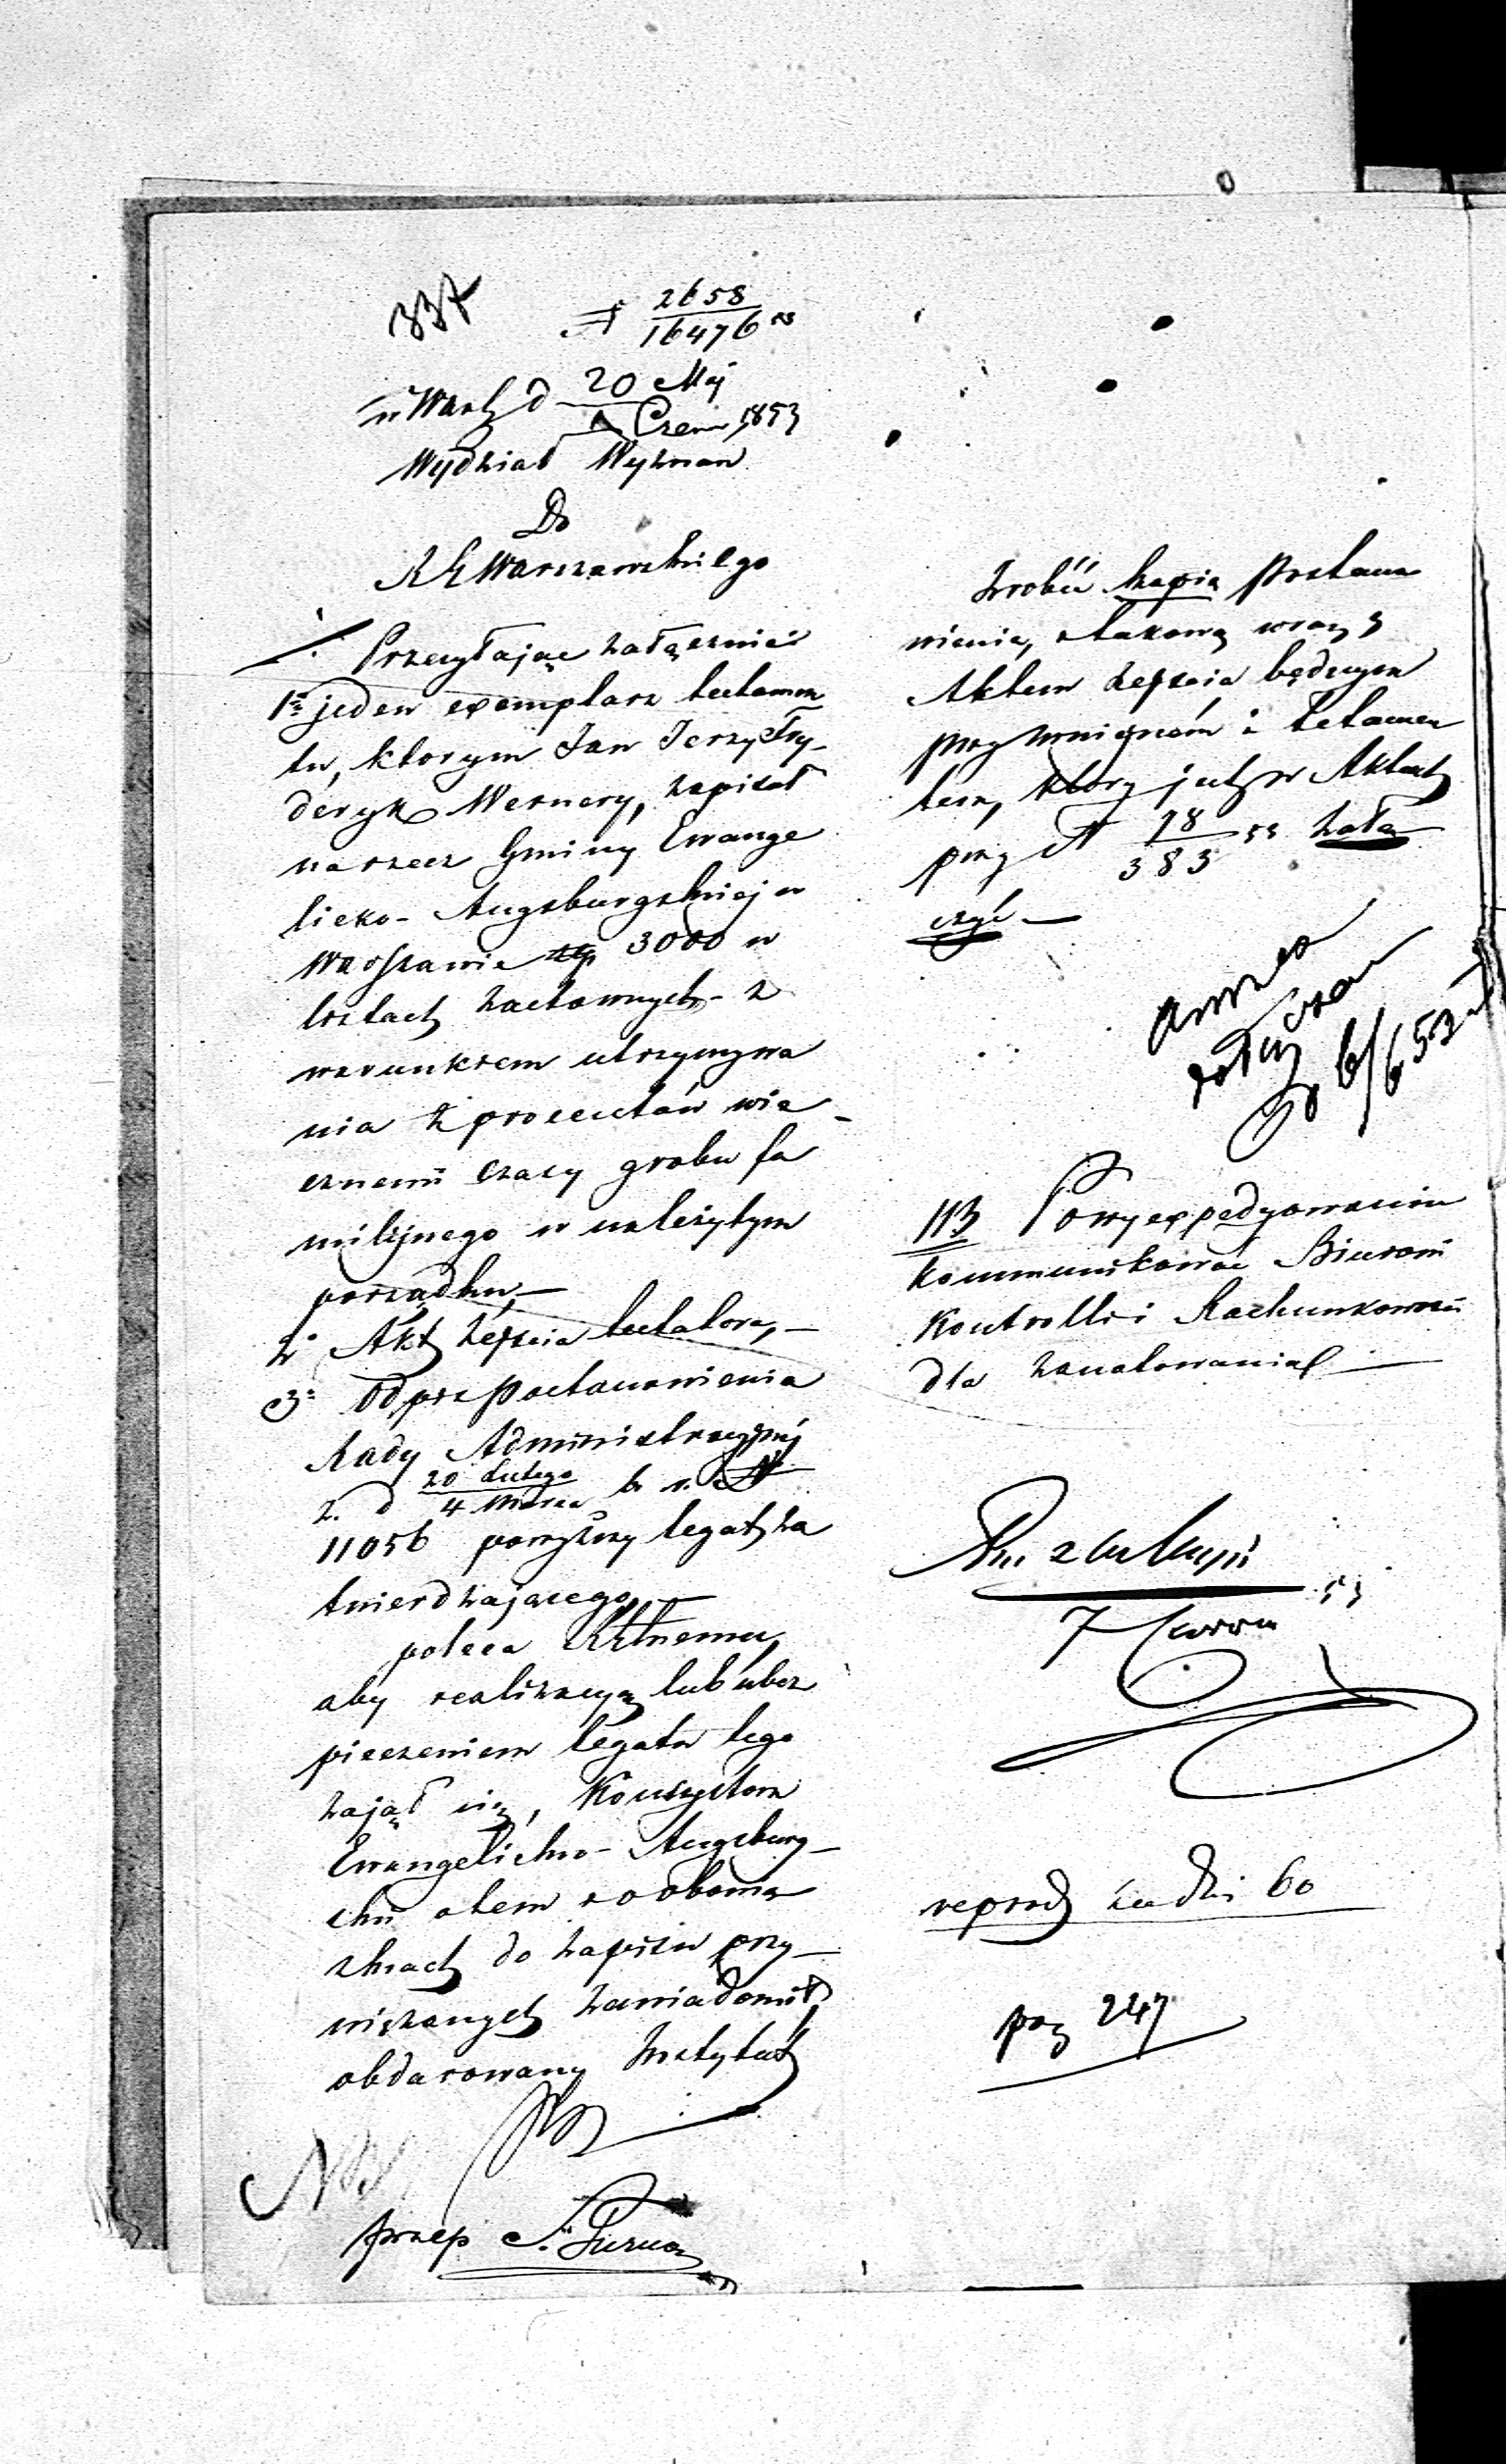 337
N 2658/16476 53
w Warsz d 20 Maj/1 Czerw 1853
Wydział Wyznan
Do
R G Warszawskiego
/. Przesyłając załącznie
1o jeden exemplarz testamen
tu, ktorym Jan Jerzy Fry-
deryk Wernery, zapisał
na rzecz Gminy Ewange
licko-Augsburgskiej w
Warszawie złp 3000 w
listach zastawnych - z
warunkiem utrzymywa
nia z procentów wie-
cznemi czasy grobu fa
milijnego w należytym
porządku, —
2o Akt zejścia testatora, —
3o Odpis Postanowienia
Rady Administracyjnej
z. d 20 Lutego/4 Marca b. r. N
11056 powyższy legat za
twierdzającego, —
poleca
aby realizacyą lub ubez
pieczeniem legatu tego
zajął się, Konsystorz
Ewangelicko-Augsburg-
ski o tem
do zapisu przy-
wiązanych zawiadomił
obdarowany Instytut
przep
Zrobić kopią Postano
wienia, i takową wraz z
Aktem zejścia będącym
przy i testamen
tem, który jest w Aktach
przy N 18/383 53 załą
czyć —
113 Po wyexpedyowaniu
kommunikować Biurom
Kontrolli i Rachunkowości
dla zanotowania —
7 Czerw 53
reprod za dni 60
poz 247